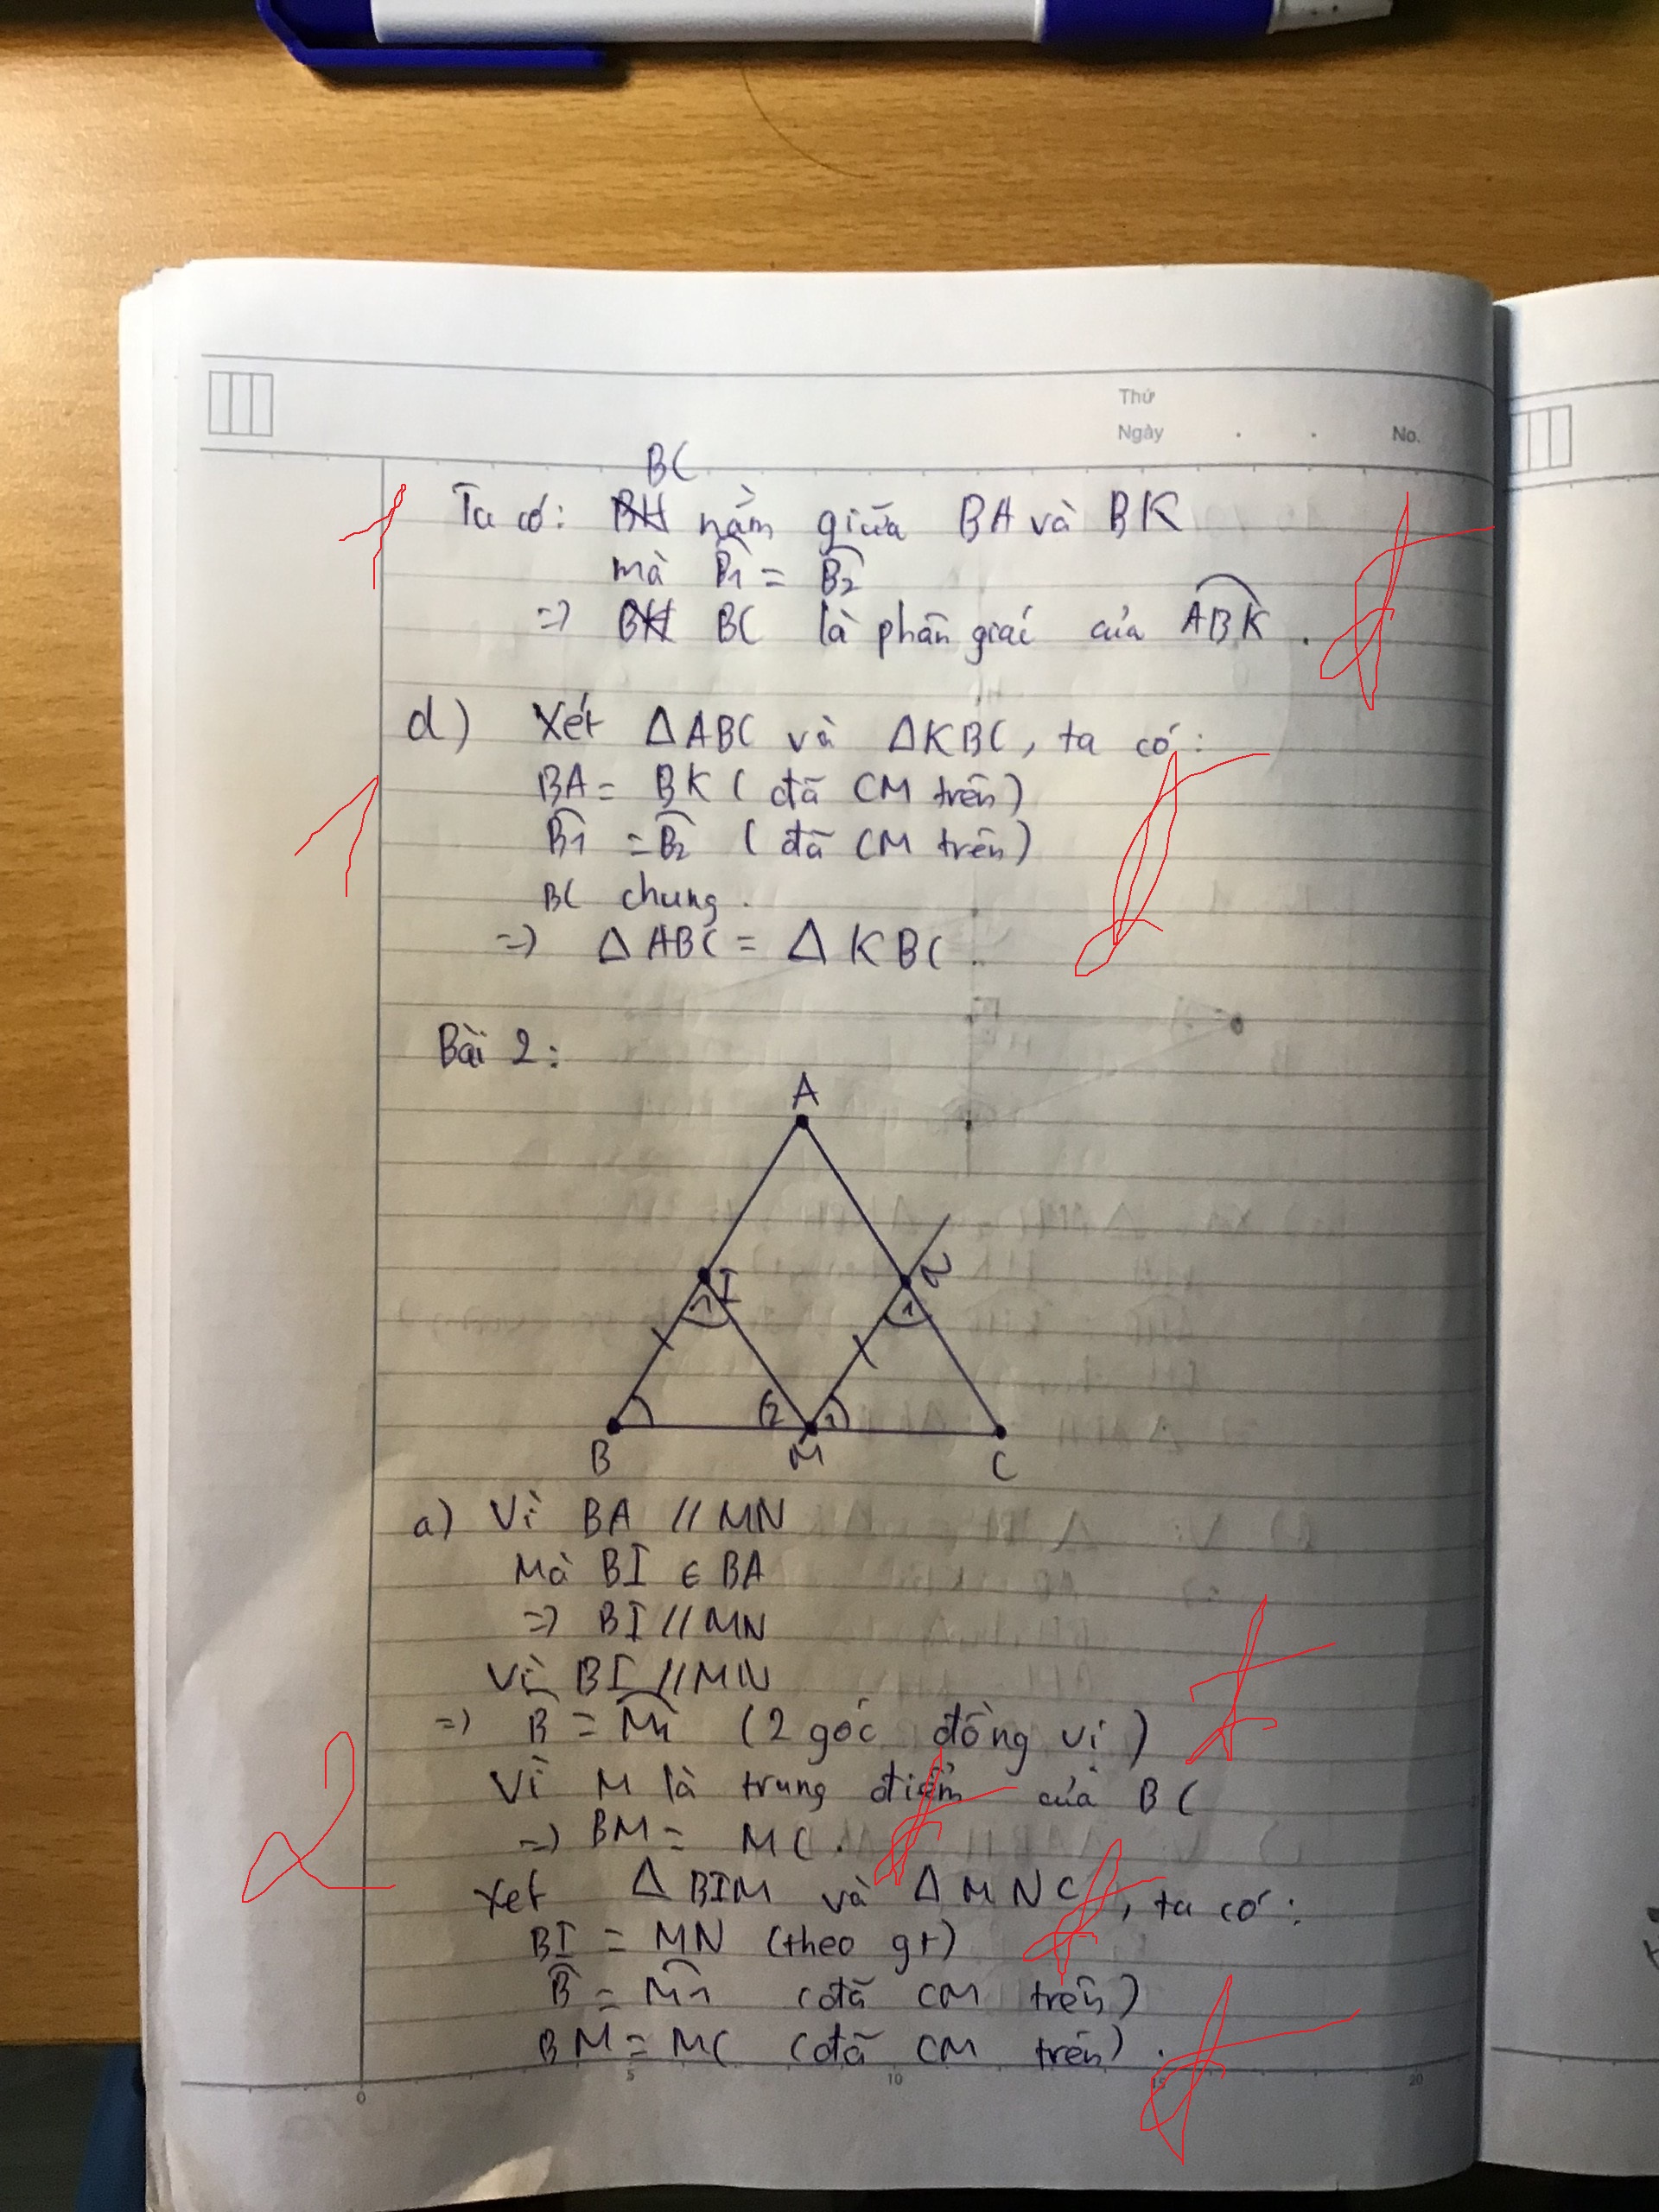 Thứ
Ngày . . No.
BC
1 Ta có: BH nằm giữa BA và BK
mà B1 = B2
=> BH BC là phân giác của ABK .
d) Xét Δ ABC và Δ KBC, ta có:
1 BA = BK ( đã CM trên)
B1 = B2 ( đã CM trên)
BC chung .
=> Δ ABC = Δ KBC .
Bài 2:
A
I N
1 1
2 1
B M C
a) Vì BA // MN
Mà BI ∈ BA
=> BI // MN
Vì BI // MN
=> B = M1 (2 góc đồng vị)
2 Vì M là trung điểm của BC
=> BM = MC .
Xét Δ BIM và Δ MNC, ta có:
BI = MN (theo gt)
B = M1 (đã CM trên)
BM = MC (đã CM trên) .
0 5 10 15 20